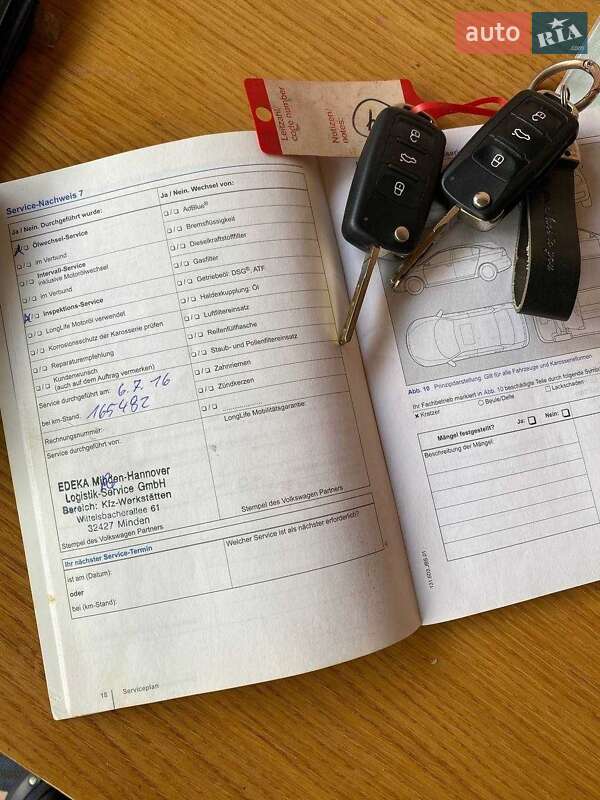 auto RIA .com
Leitzahl/
code number
Notizen/
notes:
Service-Nachweis 7
Ja / Nein. Durchgeführt wurde:
Ölwechsel-Service
im Verbund
Intervall-Service
inklusive Motorölwechsel
im Verbund
Inspektions-Service
LongLife Motoröl verwendet
Korrosionsschutz der Karosserie prüfen
Reparaturempfehlung
Kundenwunsch
(auch auf dem Auftrag vermerken)
Service durchgeführt am: 6.7.16
bei km-Stand: 165482
Rechnungsnummer:
Service durchgeführt von:
EDEKA Minden-Hannover
Logistik-Service GmbH
Bereich: Kfz-Werkstätten
Wittelsbacherallee 61
32427 Minden
Stempel des Volkswagen Partners
Ja / Nein. Wechsel von:
AdBlue®
Bremsflüssigkeit
Dieselkraftstofffilter
Gasfilter
Getriebeöl: DSG®, ATF
Haldexkupplung: Öl
Luftfiltereinsatz
Reifenfüllflasche
Staub- und Pollenfiltereinsatz
Zahnriemen
Zündkerzen
LongLife Mobilitätsgarantie:
Stempel des Volkswagen Partners
Ihr nächster Service-Termin
ist am (Datum):
oder
bei (km-Stand):
Welcher Service ist als nächster erforderlich?
18 Serviceplan
Abb. 10 Prinzipdarstellung: Gilt für alle Fahrzeuge und Karosserieformen
Ihr Fachbetrieb markiert in Abb. 10 beschädigte Teile durch folgende
Kratzer
Beule/Delle
Lackschaden
Mängel festgestellt?
Ja:
Nein:
Beschreibung der Mängel: